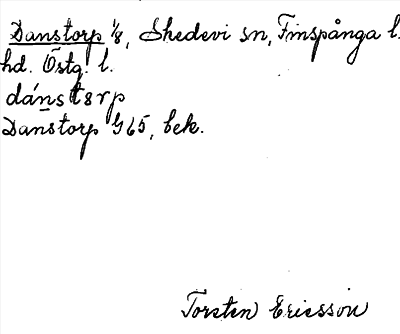 Danstorp 1/8, Skedevi sn, Finspånga l.
hd. Östg. l.
dánstərp
Danstorp G65, bek.
Torsten Ericsson